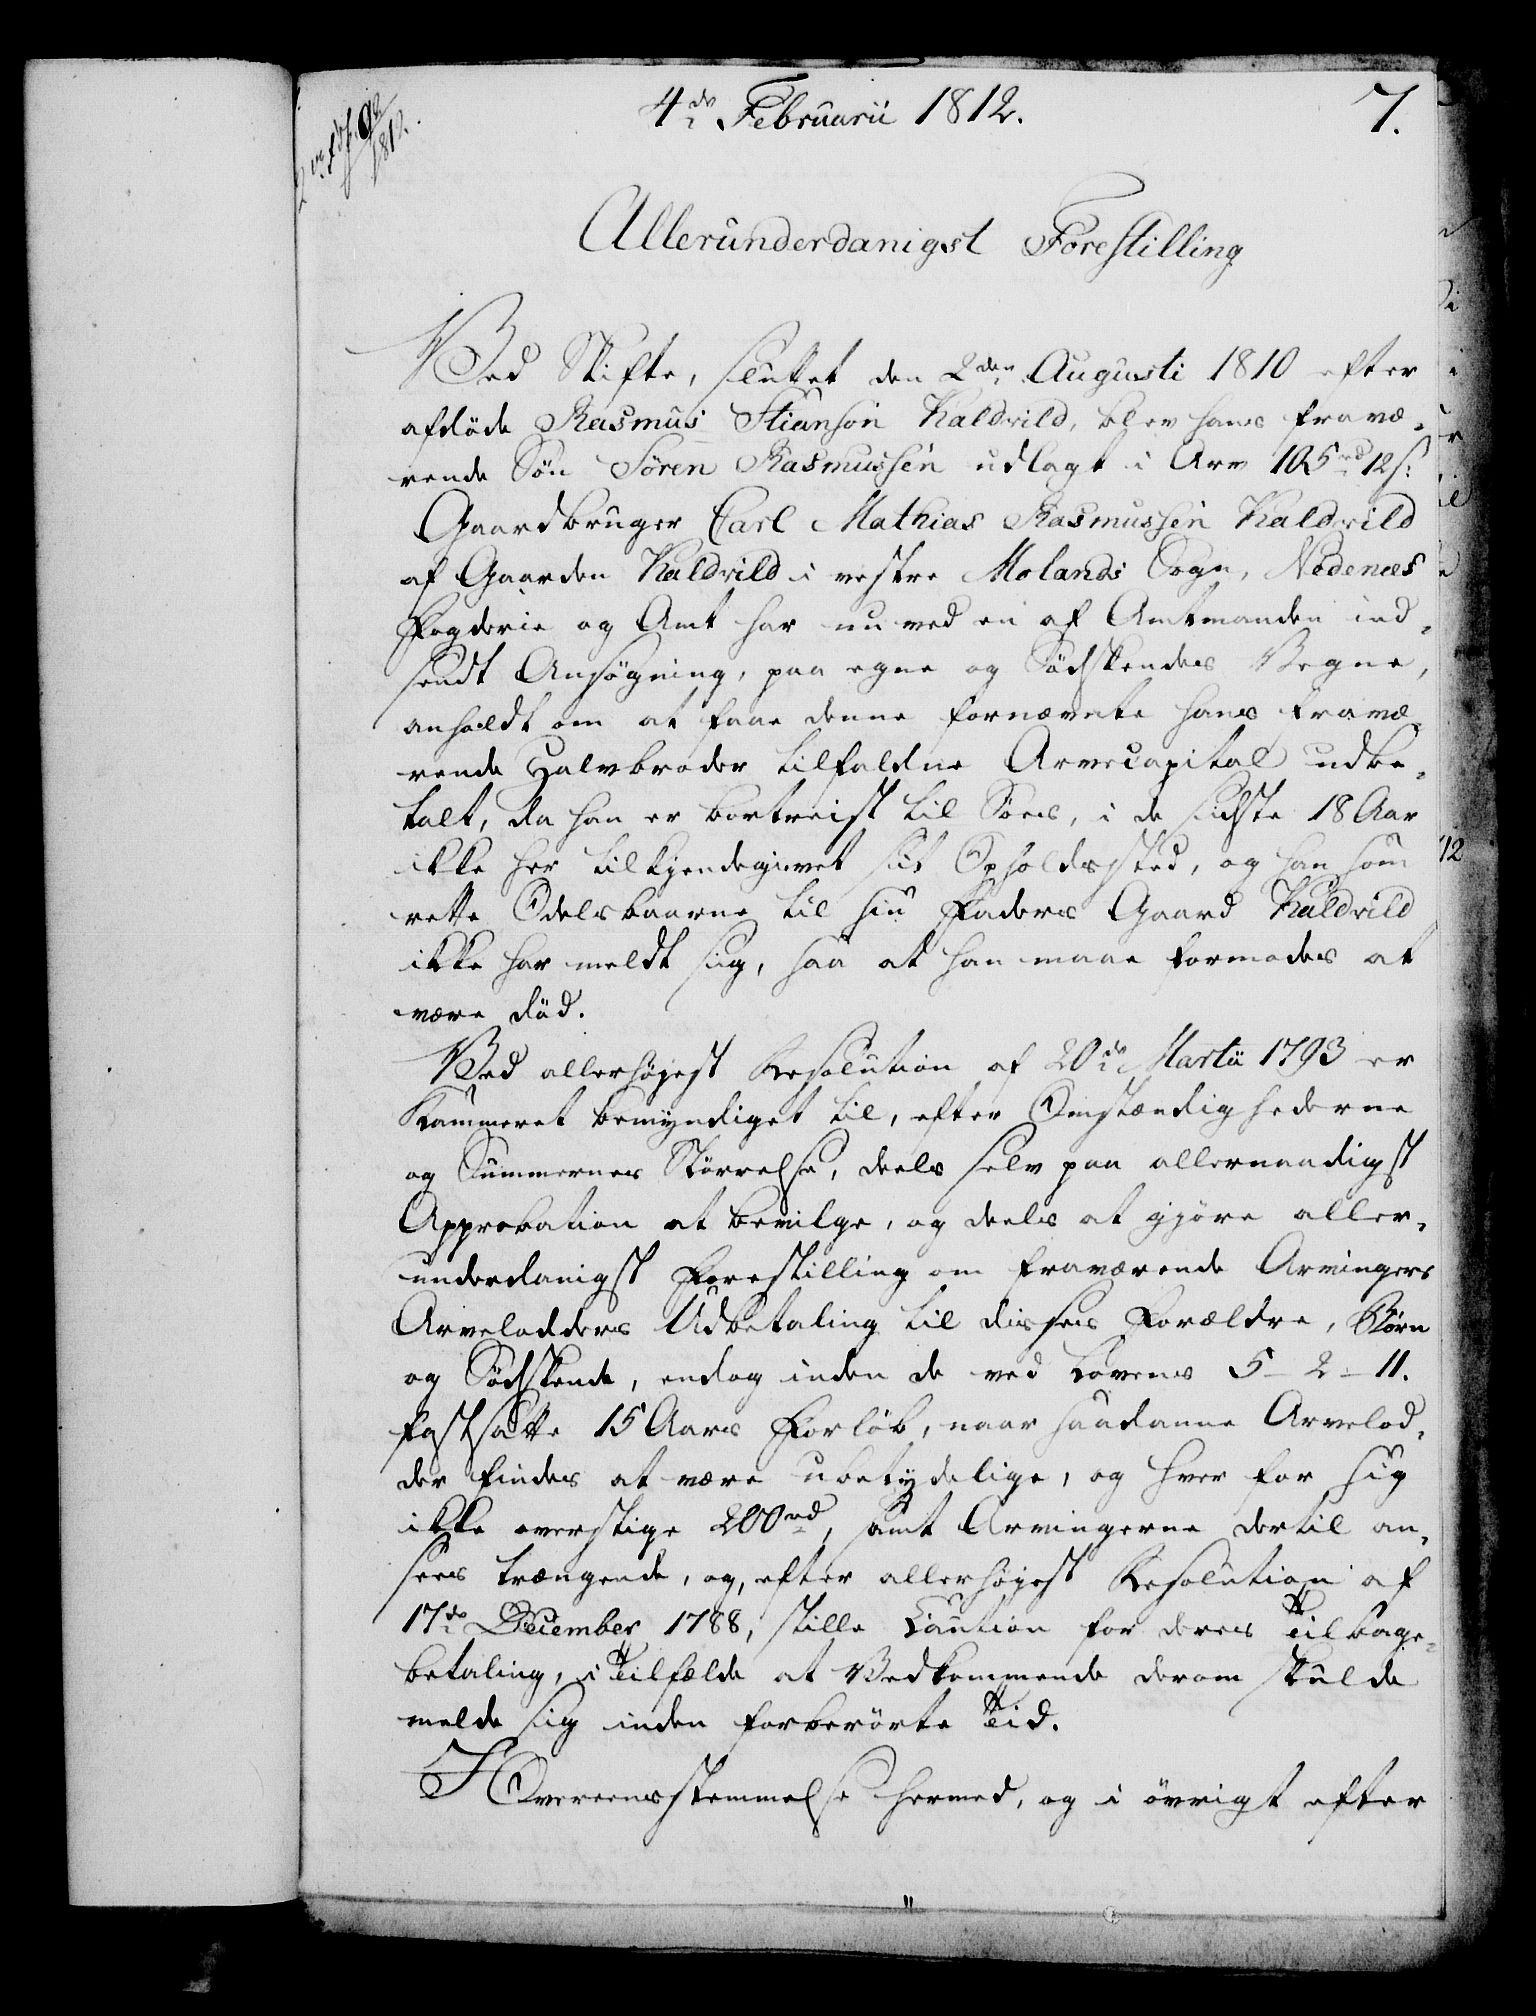 4de Februarii 1812.
7.
1812.
Allerunderdanigst Forestilling
Ved Skifte, sluttet den 2den Augusti 1810 efter
afdöde Rasmus Stiansön Kaldvild, blev hans fravæ-
rende Sön Sören Rasmussen udlagt i Arv 105rd 12s:
Gaardbruger Carl Mathias Rasmussen Kaldvild
af Gaarden Kaldvild i vestre Molands Sogn, Nedenæs
Fogderie og Amt har nu ved en af Amtmanden ind-
sendt Ansögning, paa egne og Södskendes Vegne,
anholdt om at faae denne fornævnte hans fravæ-
rende Halvbroder tilfaldne Arvecapital udbe-
talt, da han er bortreist til Söes, i de sidste 18 Aar
ikke her tilkjendegivet sit Opholdssted, og han som
rette Odelsbaarne til sin Faders Gaard Kaldvild
ikke har meldt sig, saa at han maae formodes at
være död.
Ved allerhöjest Resolution af 20de Martii 1793 er
Kammeret bemyndiget til, efter Omstændighederne
og Summernes Störrelse, deels selv paa allernaadigst
Approbation at bevilge, og deels at gjöre aller-
underdanigst Forestilling om fraværende Arvingers
Arvelodders Udbetaling til disses Forældre, Börn
og Södskende, endog inden de ved Lovens 5-2-11.
fastsatte 15 Aars Forlöb, naar saadanne Arvelod-
der findes at være ubetydelige, og hver for sig
ikke overstige 200rd, samt Arvingerne dertil an-
sees trængende, og, efter allerhöjest Resolution af
17de December 1788, stille Caution for deres Tilbage-
betaling, i Tilfælde at Vedkommende derom skulde
melde sig inden forberörte Tid.
I Overeensstemmelse hermed, og i övrigt efter
12